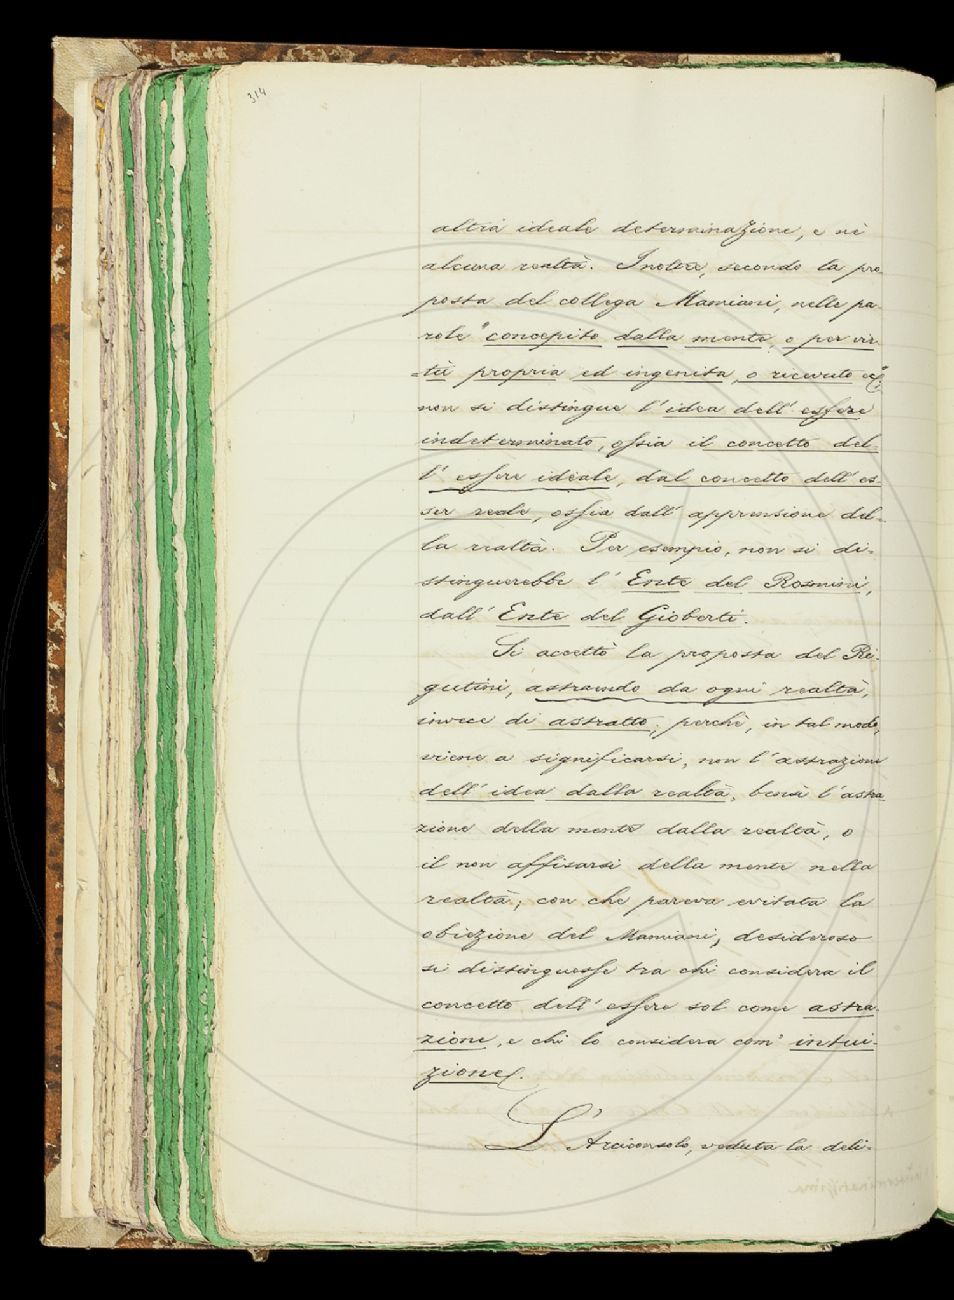 314
altra ideale determinazione, e nè
alcuna realtà. Inoltre, secondo la pro
posta del collega Mamiani, nelle pa
role "concepito dalla mente, o per vir
=tù propria ed ingenita, o ricevuto &";
non si distingue l'idea dell'essere
indeterminato, ossia il concetto del
l'essere ideale, dal concetto dell'es
ser reale, ossia dall'apprensione del-
la realtà. Per esempio, non si di-
stinguerebbe l'Ente del Rosmini,
dall'Ente del Gioberti.
Si accettò la proposta del Ri-
gutini, astraendo da ogni realtà,
invece di astratto; perchè, in tal modo,
viene a significarsi, non l'astrazione
dell'idea dalla realtà, bensì l'astra
zione della mente dalla realtà, o
il non affisarsi della mente nella
realtà; con che pareva evitata la
obiezione del Mamiani, desideroso
si distinguesse tra chi considera il
concetto dell'essere sol come astra-
zione, e chi lo considera com' intui-
zione.
L'Arciconsolo, veduta la deli-